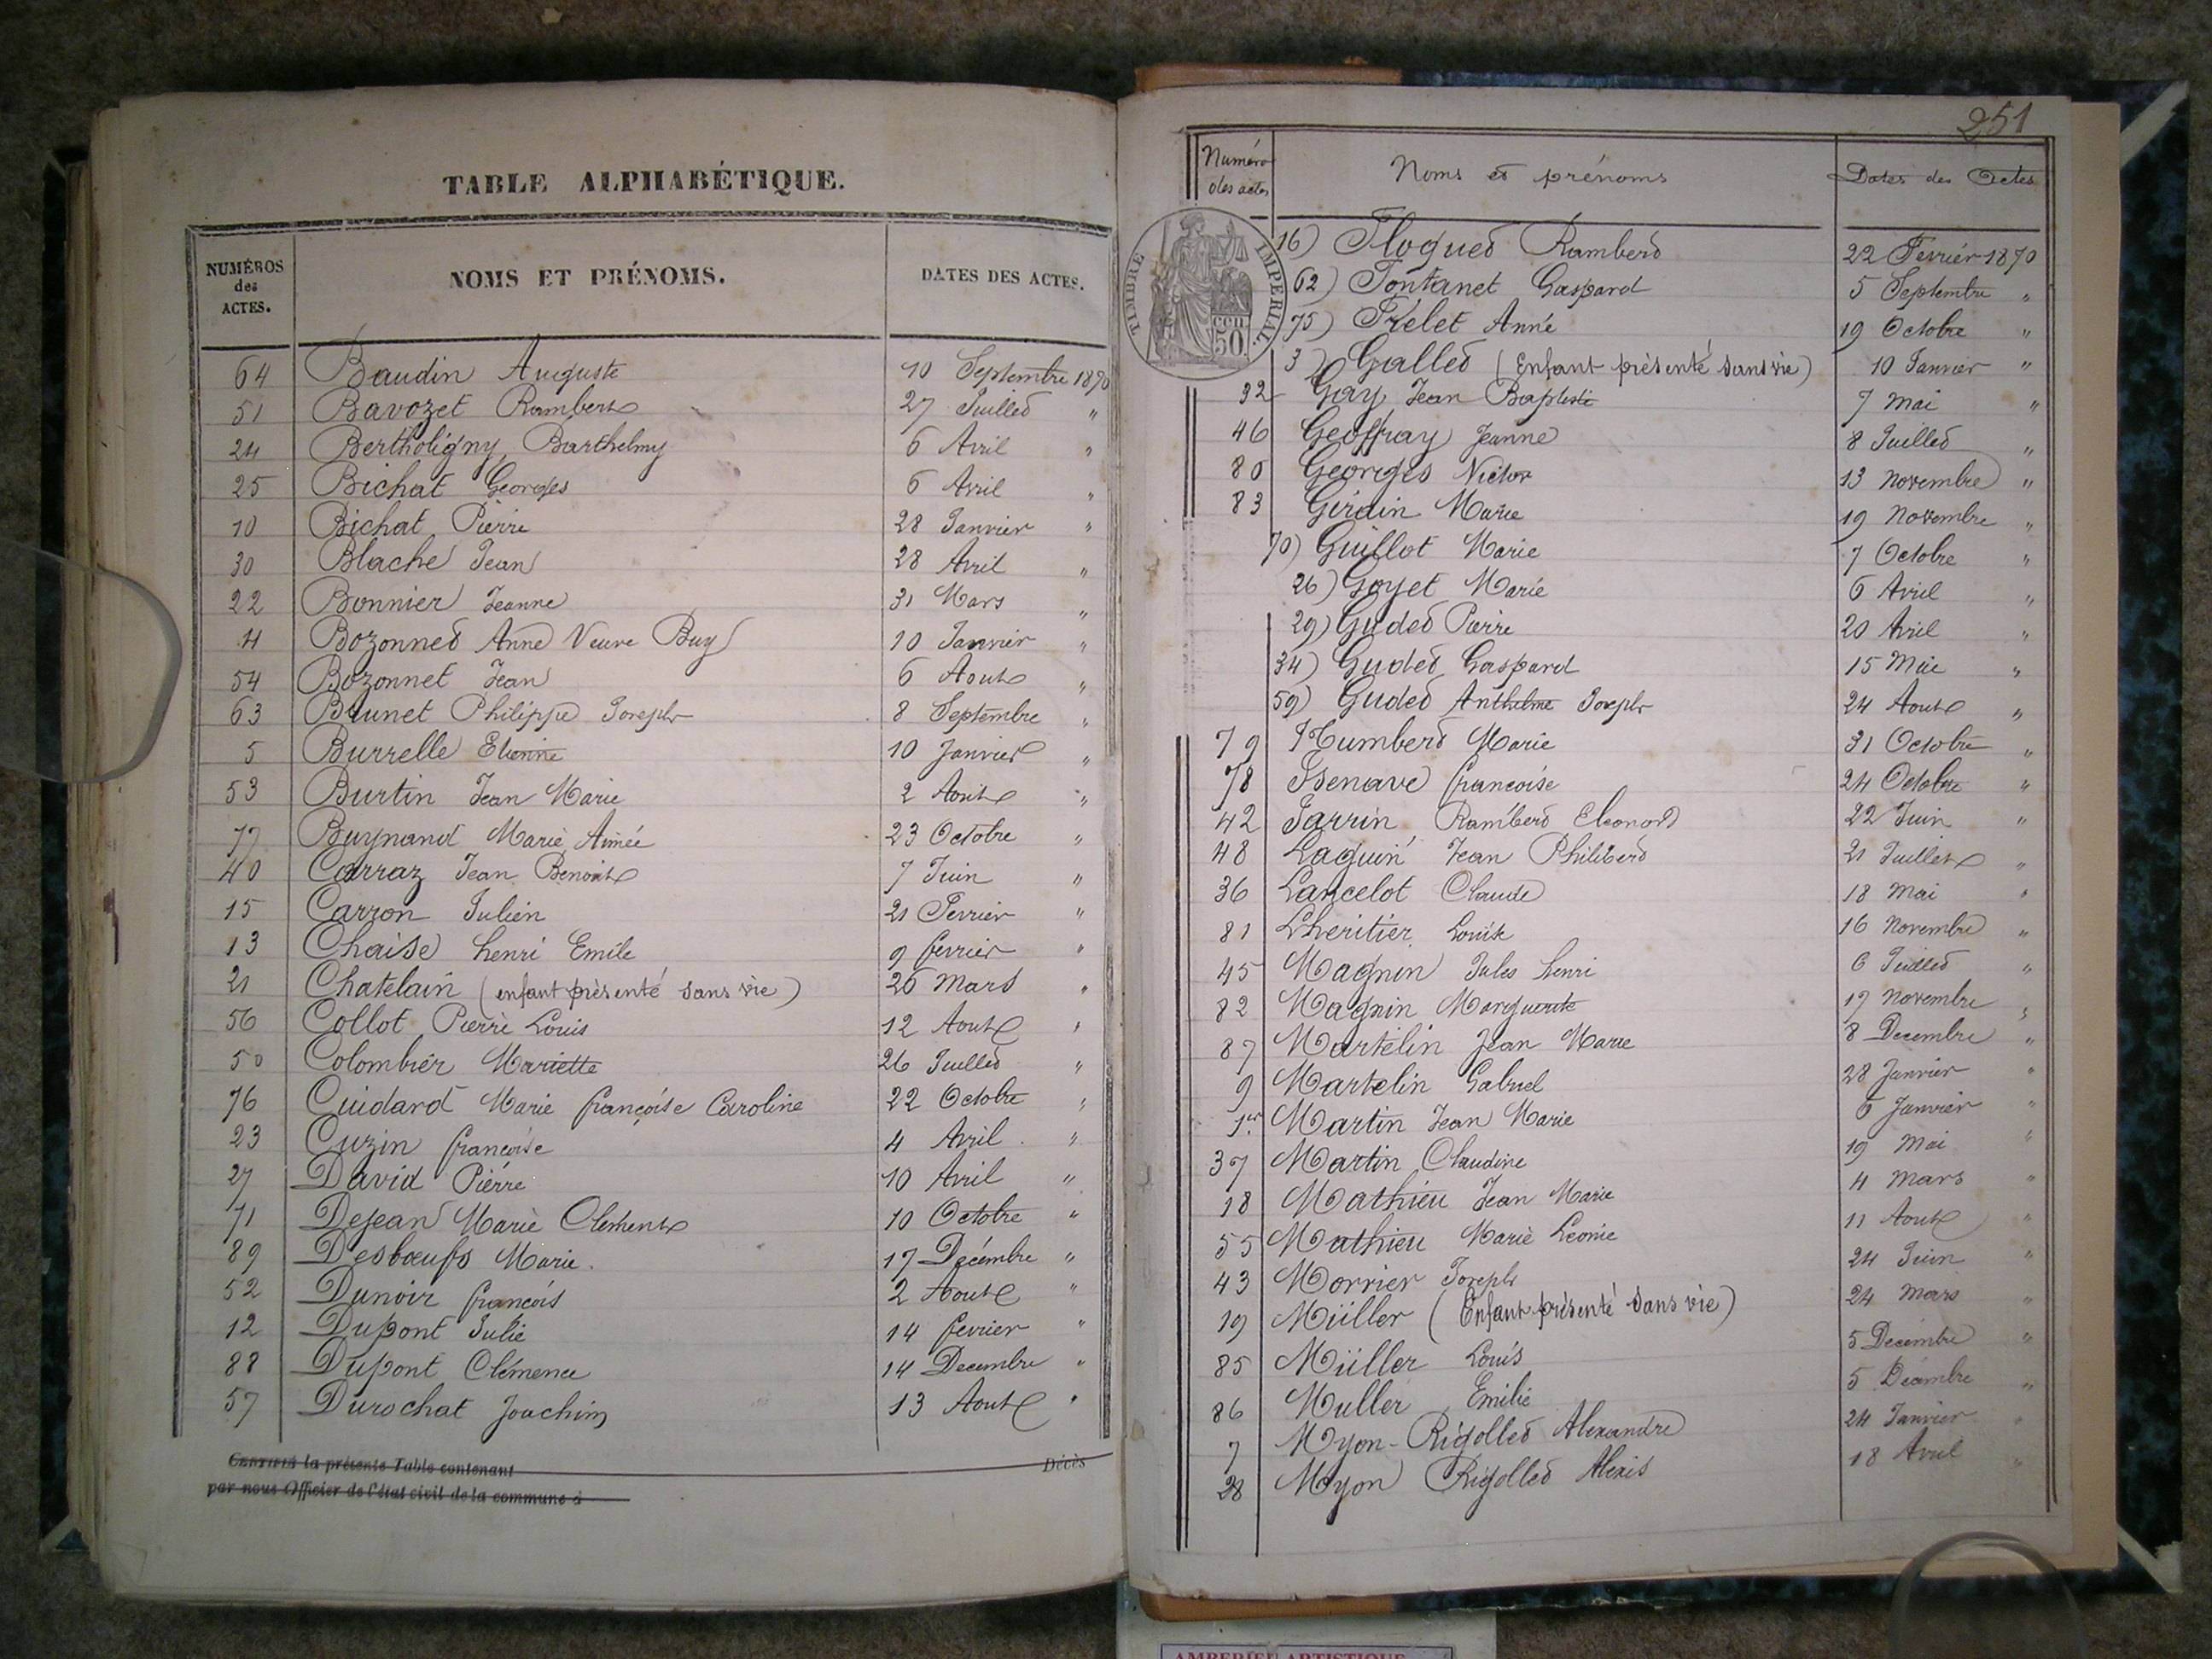 TABLE ALPHABÉTIQUE.
NUMÉROS des ACTES. NOMS ET PRÉNOMS. DATES DES ACTES.
64 Baudin Auguste 10 Septembre 1870
51 Bavozet Rambert 27 Juillet "
24 Bertholigny Barthelmy 6 Avril "
25 Bichat Georges 6 Avril "
10 Bichat Pierre 28 Janvier "
30 Blache Jean 28 Avril "
22 Bonnier Jeanne 31 Mars "
4 Bozonnet Anne Veuve Buy 10 Janvier "
54 Bozonnet Jean 6 Aout "
63 Brunet Philippe Joseph 8 Septembre "
5 Burrelle Etienne 10 Janvier "
53 Burtin Jean Marie 2 Aout "
77 Buynand Marie Aimée 23 Octobre "
40 Carraz Jean Benoit 7 Juin "
15 Carron Julien 21 Fevrier "
13 Chaise henri Emile 9 fevrier "
21 Chatelain (enfant présenté sans vie) 26 Mars "
56 Collot Pierre Louis 12 Aout "
50 Colombier Mariette 26 Juillet "
76 Cuidard Marie françoise Caroline 22 Octobre "
23 Cuzin francoise 4 Avril "
27 David Pierre 10 Avril "
71 Dejean Marie Clement 10 Octobre "
89 Desbœufs Marie. 17 Décembre "
52 Dunoir francois 2 Aout "
12 Dupont Julie 14 fevrier "
88 Dupont Clémence 14 Decembre "
57 Durochat Joachim 13 Aout "
CERTIFIÉ la présente Table contenant Décès
par nous Officier de l'état civil de la commune d
251
Numéro des actes Noms et prénoms Dates des Actes
TIMBRE IMPERIAL
50 cen
16) Floquet Rambert 22 Fevrier 1870
62) Fontanet Gaspard 5 Septembre "
75) Frelet Anne 19 Octobre "
3) Gallet (Enfant présenté sans vie) 10 Janvier "
32 Gay Jean Baptiste 7 Mai "
46 Geoffray Jeanne 8 Juillet "
80 Georges Victor 13 Novembre "
83 Girdin Marie 19 Novembre "
70) Guillot Marie 7 Octobre "
26) Goyet Marie 6 Avril "
29) Gudet Pierre 20 Avril "
34) Gudet Gaspard 15 Mai "
59) Gudet Anthelme Joseph 24 Aout "
79 Humbert Marie 31 Octobre "
78 Isenave francoise 24 Octobre "
42 Jarrin Rambert Eleonord 22 Juin "
48 Laguin Jean Philibert 21 Juillet "
36 Lancelot Claude 18 Mai "
81 Lheritier Louise 16 Novembre "
45 Magnin Jules henri 6 Juillet "
82 Magnin Marguerite 17 Novembre "
87 Martelin Jean Marie 8 Decembre "
9 Martelin Gabriel 28 Janvier "
1er Martin Jean Marie 6 Janvier "
37 Martin Claudine 19 Mai "
18 Mathieu Jean Marie 4 Mars "
55 Mathieu Marie Leonie 11 Aout "
43 Morrier Joseph 24 Juin "
19 Müller (Enfant présenté sans vie) 24 Mars "
85 Müller Louis 5 Decembre "
86 Muller Emilie 5 Decembre "
7 Myon-Rigollet Alexandre 24 Janvier "
28 Myon Rigollet Alexis 18 Avril "
AMBERIEU ARTISTIQUE